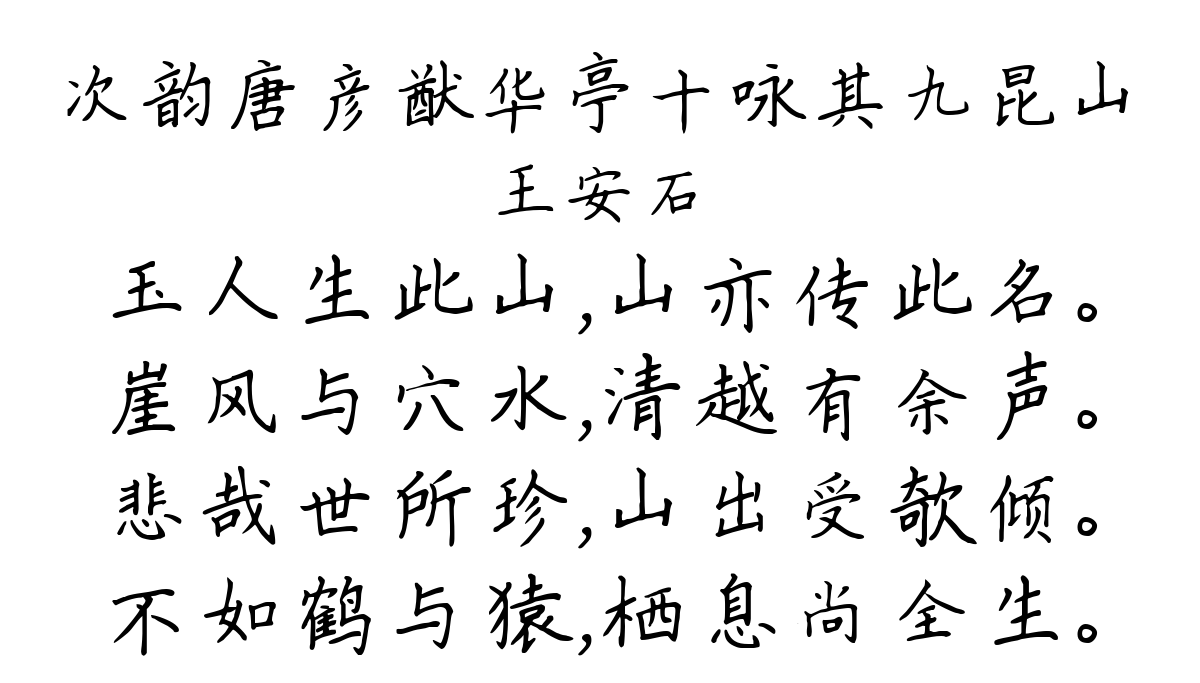 次韵唐彦猷华亭十咏其九昆山
王安石
玉人生此山,山亦传此名。
崖风与穴水,清越有余声。
悲哉世所珍,山出受欹倾。
不如鹤与猿,栖息尚全生。